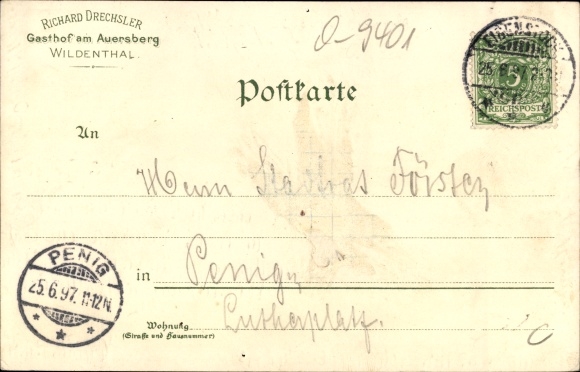 RICHARD DRECHSLER
Gasthof am Auersberg
WILDENTHAL.
O-9401
5
REICHSPOST
25 6 97
Postkarte
An
Herrn Stadtrat Förster
in Penig,
Lutherplatz.
Wohnung
(Straße und Hausnummer)
PENIG
25.6.97. 11-12N.